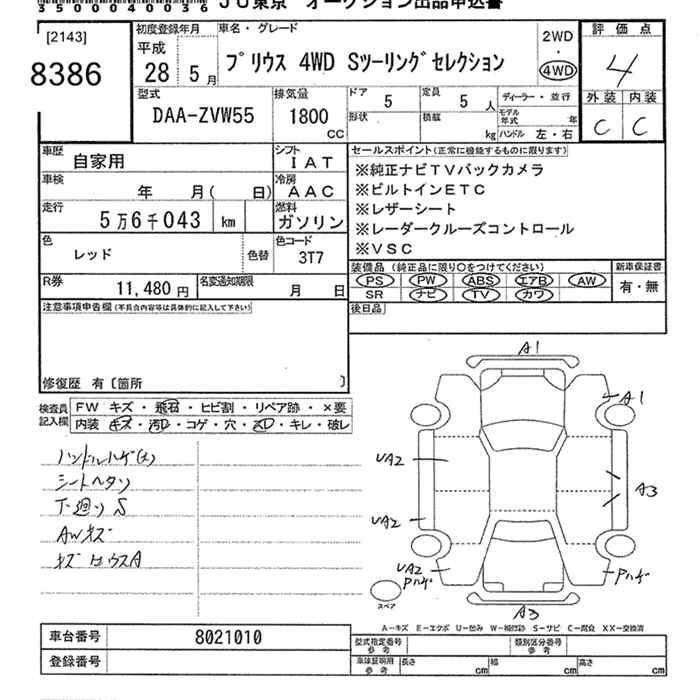 35000400036 JU東京 オークション出品申込書
[2143]
8386
初度登録年月
平成
28 5月
車名・グレード
プリウス 4WD Sツーリングセレクション
2WD
・
4WD
評価点
4
外装 内装
C C
型式
DAA-ZVW55
排気量
1800
CC
ドア 5
定員 5 人
形状
積載 kg
ディーラー・並行
モデル年式 年
ハンドル 左・右
車歴
自家用
シフト
IAT
車検
年 月( 日)
冷房
AAC
走行
5万6千043 km
燃料
ガソリン
色
レッド
色替
色コード
3T7
R券
11,480 円
名変通知期限
月 日
セールスポイント(正常に機能するものに限ります)
※純正ナビTVバックカメラ
※ビルトインETC
※レザーシート
※レーダークルーズコントロール
※VSC
装備品 (純正品に限り○をつけてください)
PS PW ABS エアB AW
SR ナビ TV カワ
新車保証書
有・無
後日品
注意事項申告欄(不具合内容等は具体的に記入して下さい)
修復歴 有〔箇所 〕
検査員記入欄
FW キズ・飛石・ヒビ割・リペア跡・×要
内装 キズ・汚レ・コゲ・穴・スレ・キレ・破レ
ハンドルハゲ(大)
シートヘタリ
下廻りS
AWキズ
A1
A1
UA2
A3
UA2
UA2
Pハゲ
Pハゲ
A3
スペア
A-キズ E-エクボ U-凹み W-補修跡 S-サビ C-腐食 XX-交換済
車台番号 8021010
登録番号
型式指定番号
参考
類別区分番号
参考
車庫証明用
参考
長さ cm
幅 cm
高さ cm